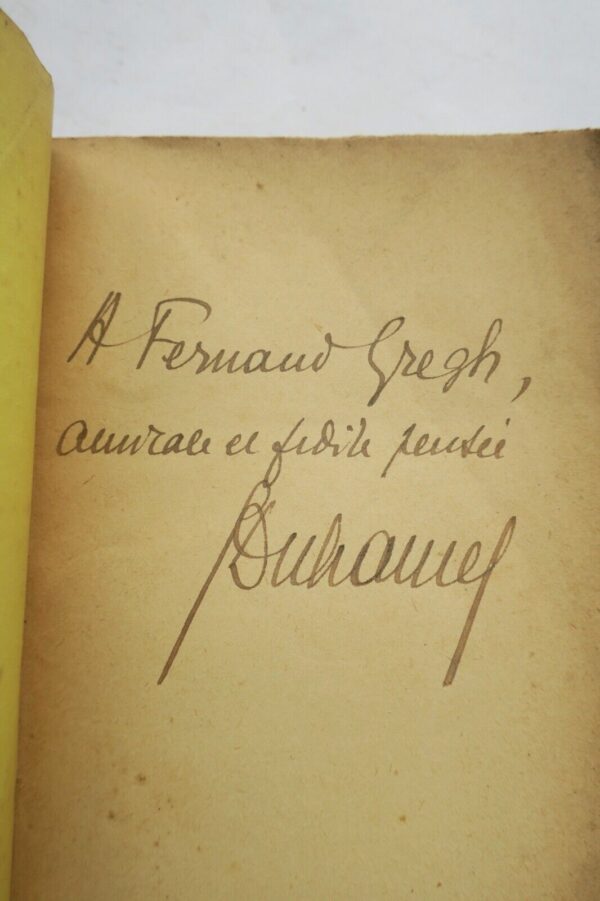 A Fernand Gregh,
amicale et fidèle pensée
GDuhamel